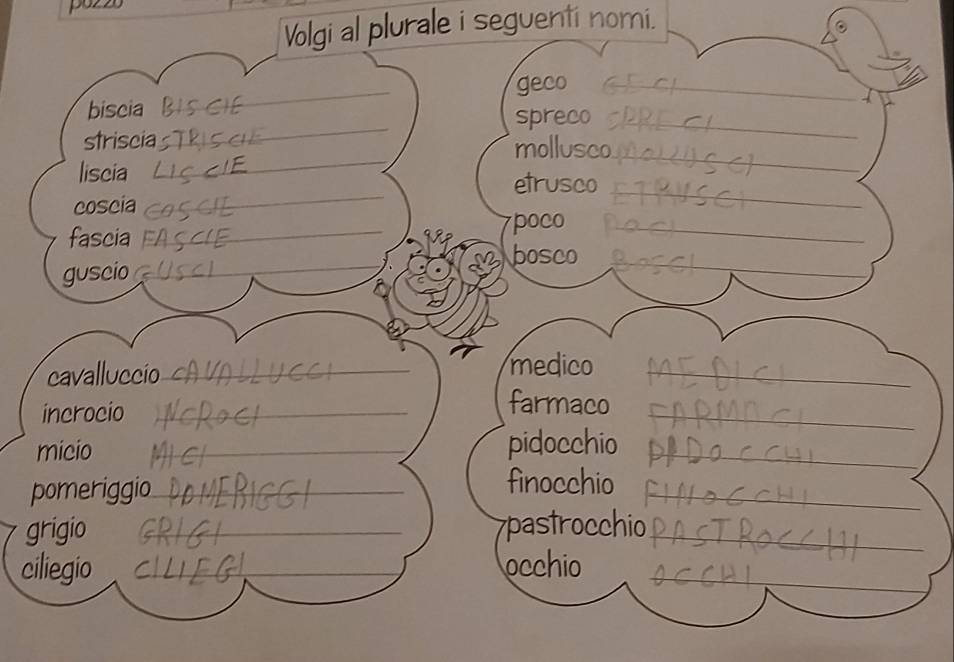 Volgi al plurale i seguenti nomi.
biscia BISCIE
striscia STRISCIE
liscia LISCIE
coscia COSCIE
fascia FASCIE
guscio GUSCI
geco GECI
spreco SPRECI
mollusco MOLLUSCI
etrusco ETRUSCI
poco POCI
bosco BOSCI
cavalluccio CAVALLUCCI
incrocio INCROCI
micio MICI
pomeriggio POMERIGGI
grigio GRIGI
ciliegio CILIEGI
medico MEDICI
farmaco FARMACI
pidocchio PIDOCCHI
finocchio FINOCCHI
pastrocchio PASTROCCHI
occhio OCCHI